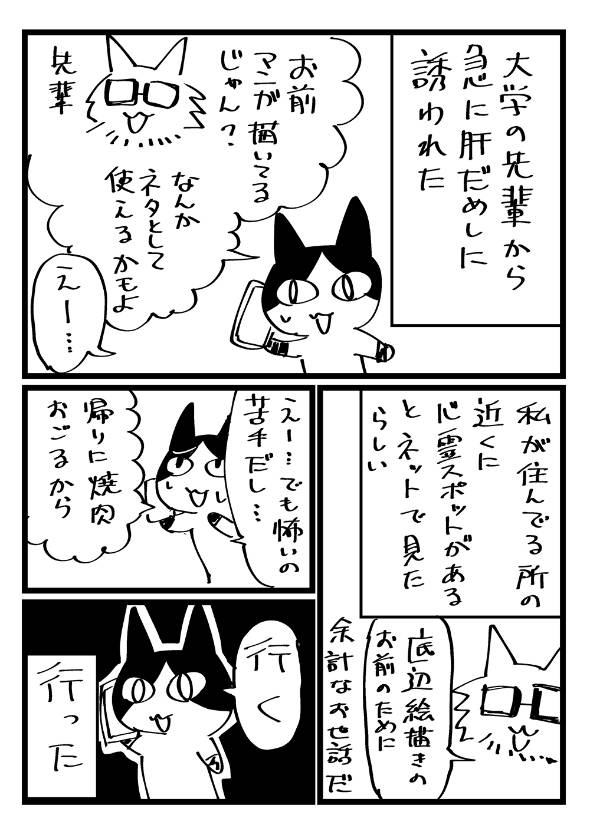 大学の先輩から
急に肝だめしに
誘われた
お前
マンガ描いてる
じゃん?
先輩
なんか
ネタとして
使えるかもよ
えー…
私が住んでる所の
近くに
心霊スポットがある
とネットで見た
らしい
底辺絵描きの
お前のために
余計なお世話だ
えー…でも怖いの
苦手だし…
帰りに焼肉
おごるから
行く
行った